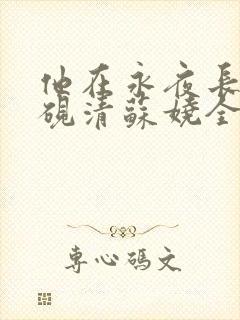 他在永夜長
硯清蘇嬈全
專心碼文